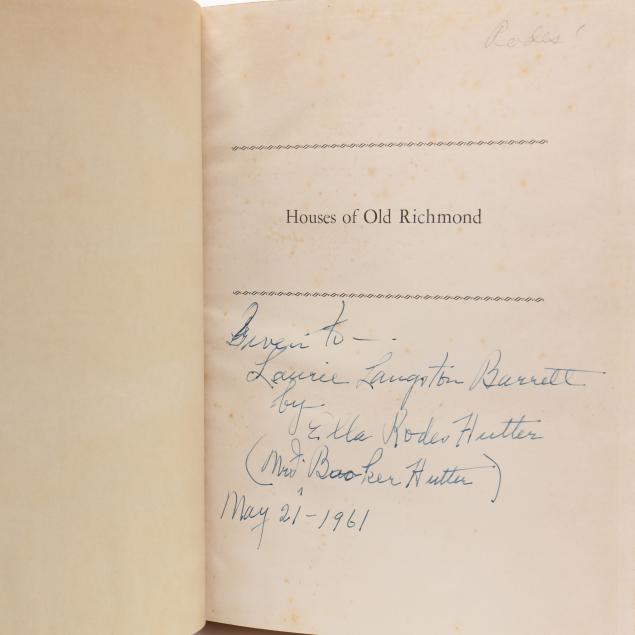 Rodes'
Houses of Old Richmond
Given to —.
Laurie Langston Barrett
by
Ella Rodes Hutter
(Mrs. Booker Hutter)
May 21 - 1961